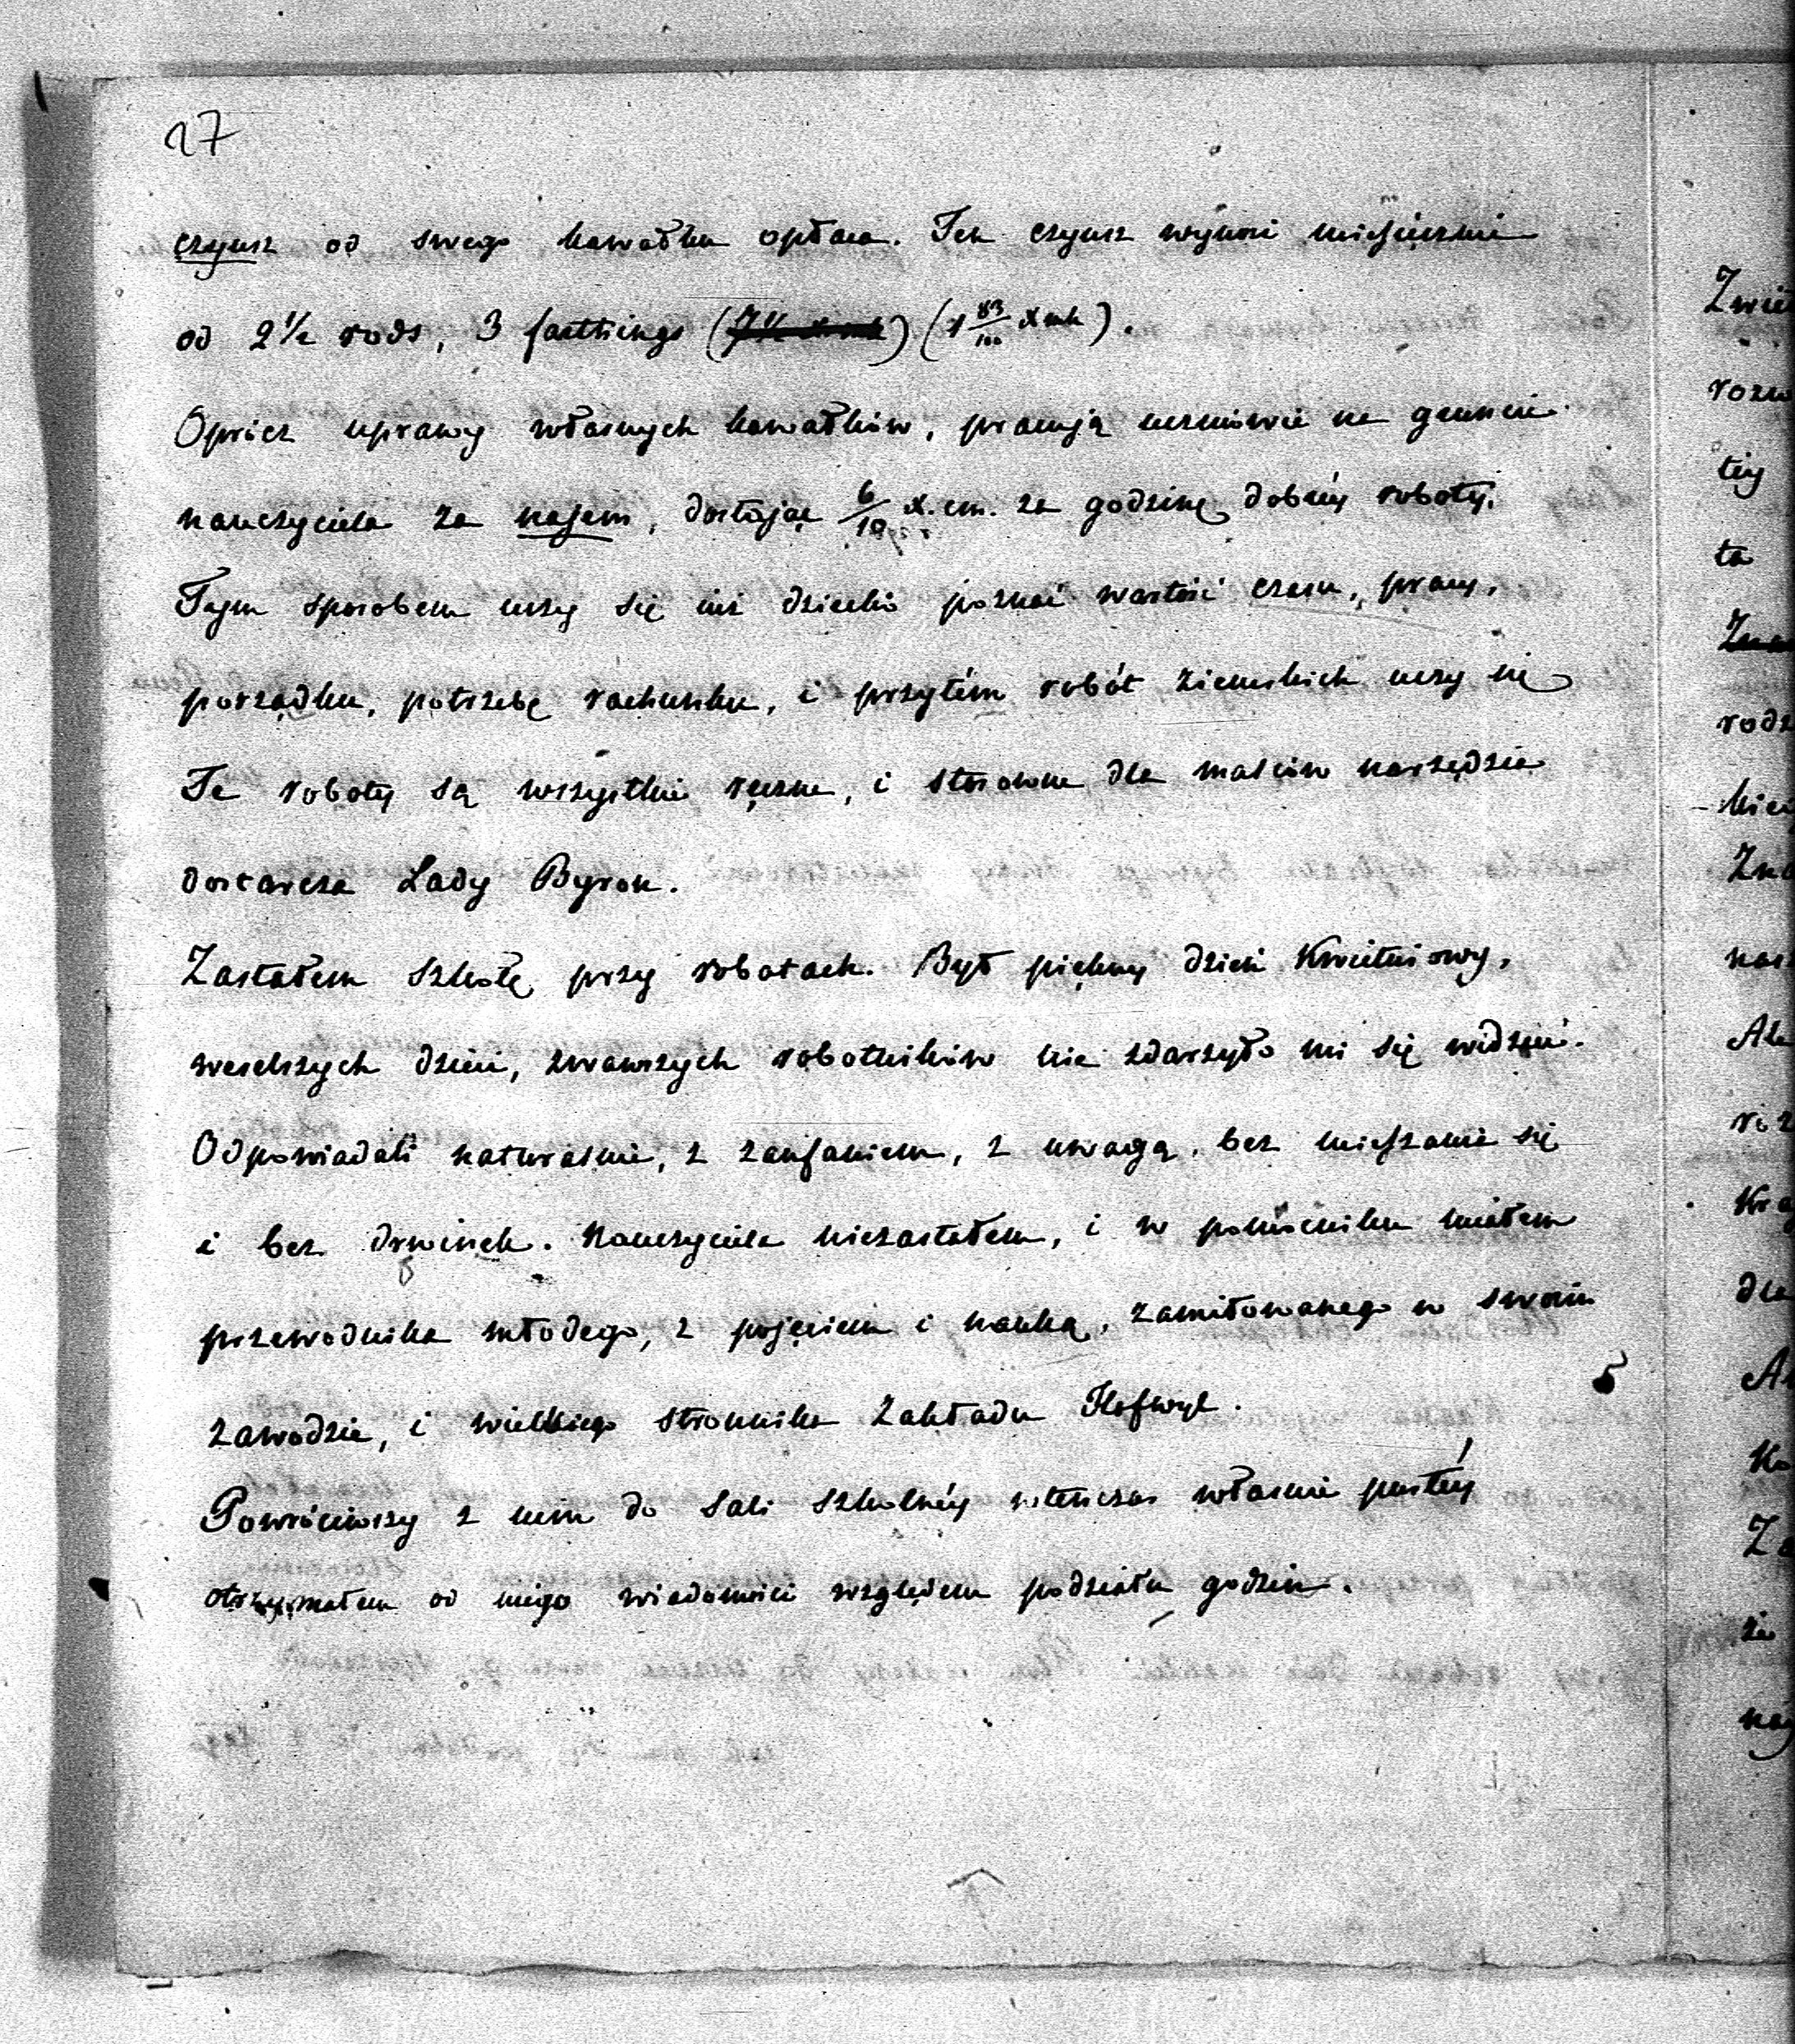 27
czynsz od swego kawałka opłaca. Ten czynsz wynosi miesięcznie
od 2 1/2 rods, 3 farthings (1 83/100 x mk).
Oprócz uprawy własnych kawałków, pracują uczniowie na gruncie
nauczyciela za najem, dostając 6/10 x. cm. za godzinę dobréy roboty.
Tym sposobem uczy się iuż dziecko poznać wartość czasu, pracy,
porządku, potrzebę rachunku, i przytém robót ziemskich uczy się
Te roboty są wszystkie ręczne, i stosowne dla malców narzędzia
dostarcza Lady Byron.
Zastałem szkołę przy robotach. Był piękny dzień Kwietniowy,
weselszych dzieci, żwawszych robotników nie zdarzyło mi się widzieć.
Odpowiadali naturalnie, z zaufaniem, z uwagą, bez mieszania się
i bez drwinek. Nauczyciela niezastałem, i w pomocniku miałem
przewodnika młodego, z pojęciem i nauką, zamiłowanego w swoim
zawodzie, i wielkiego stronnika Zakładu Hofwyl.
Powróciwszy z nim do Sali szkolnéy wtenczas właśnie pustéy
otrzymałem od niego wiadomości względem podziału godzin.
Zwie
rozw
téy
ta
Zna
rodz
kie
Zna
nas
Ale
róż
Kra
dla
Ko
Za
że